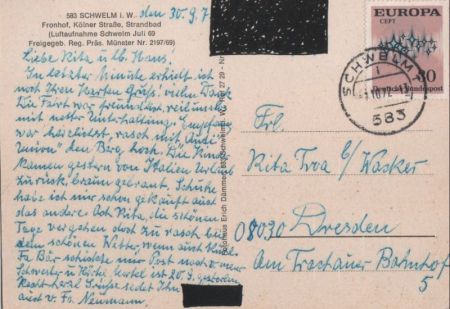 583 SCHWELM i. W.
Fronhof, Kölner Straße, Strandbad
(Luftaufnahme Schwelm Juli 69
Freigegeb. Reg. Präs. Münster Nr. 2197/69)
den 30.9.7
Liebe Rita u. lb. Hans.
In letzter Minute erhielt ich
noch Ihren Karten Grüß! vielen Dank
Die Fahrt war
mit netter Unterhaltung. Empfang
war herzlichst, rasch mit
den Berg hoch. Die Kinder
kamen gestern von Italien
zurück, braun gebrant. Schuhe
habe ich mir schon gekauft auch
das andere. Ach Rita, die schönen
Tage vergehen doch zu rasch bei
dem schönen Wetter, wenn auch
Fa Bär schickte mir Post nach v. meiner
Schwester u. 20.9. gestorben
Recht herzl. Grüße sendet Ihnen
auch v. Fr. Neumann.
EUROPA
CEPT
30
Deutsche Bundespost
SCHWELM 1
583
Frl.
Rita Troa b/ Wacker
08030 Dresden
Am Trachauer Bahnhof
5